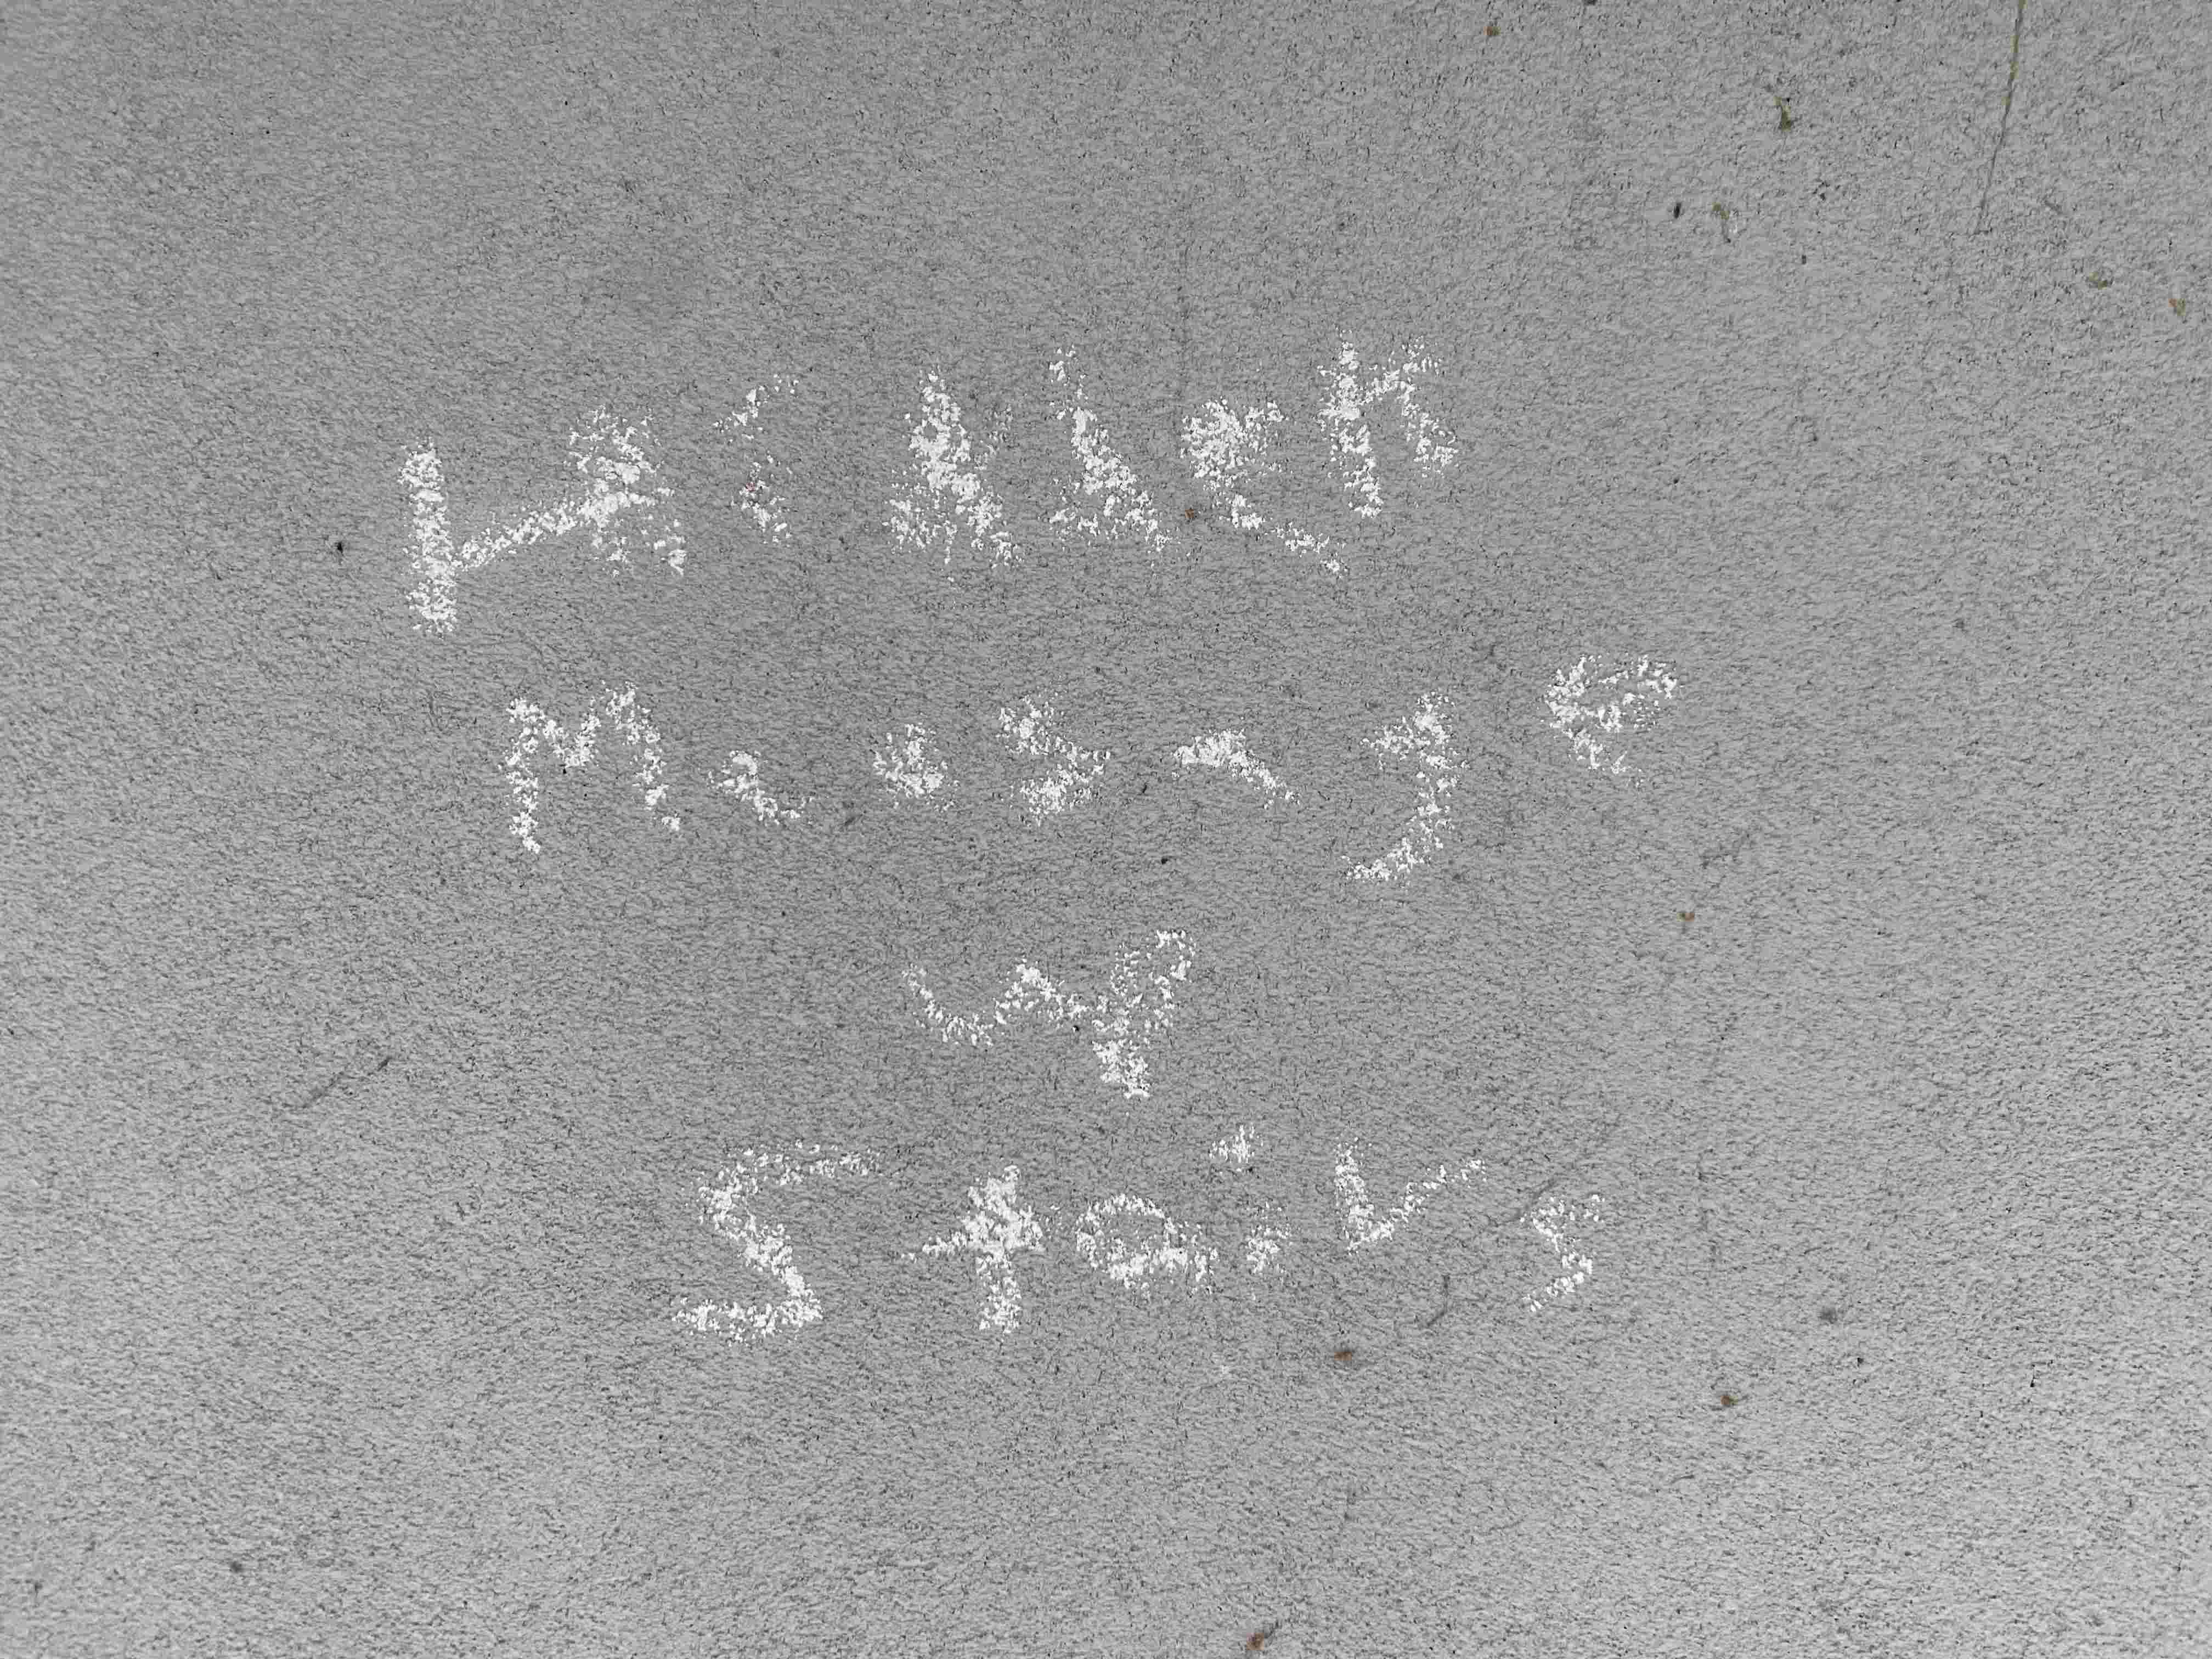 Hidden
Message
up
Stairs